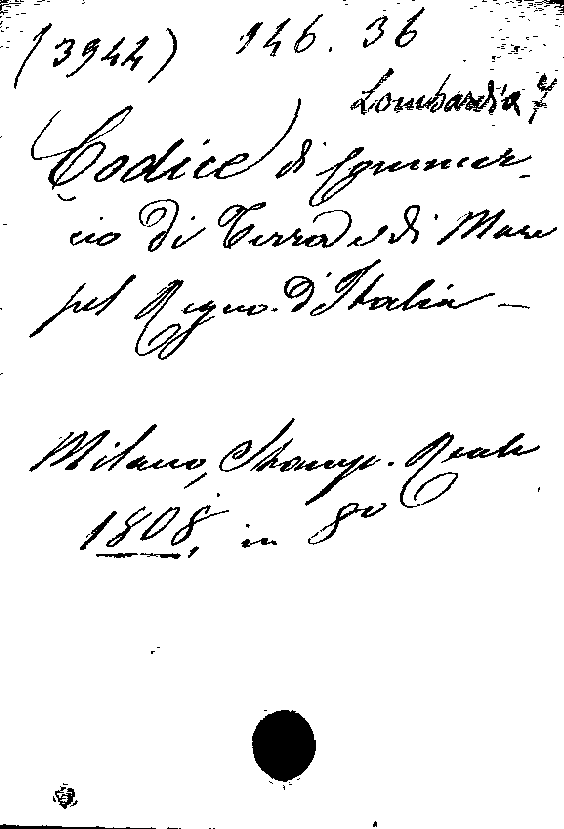 (3944) 146. 36
Lombardia 7
Codice di Commer-
cio di Terra e di Mare
pel Regno d'Italia —
Milano, Stamp. Reale
1808, in 8o